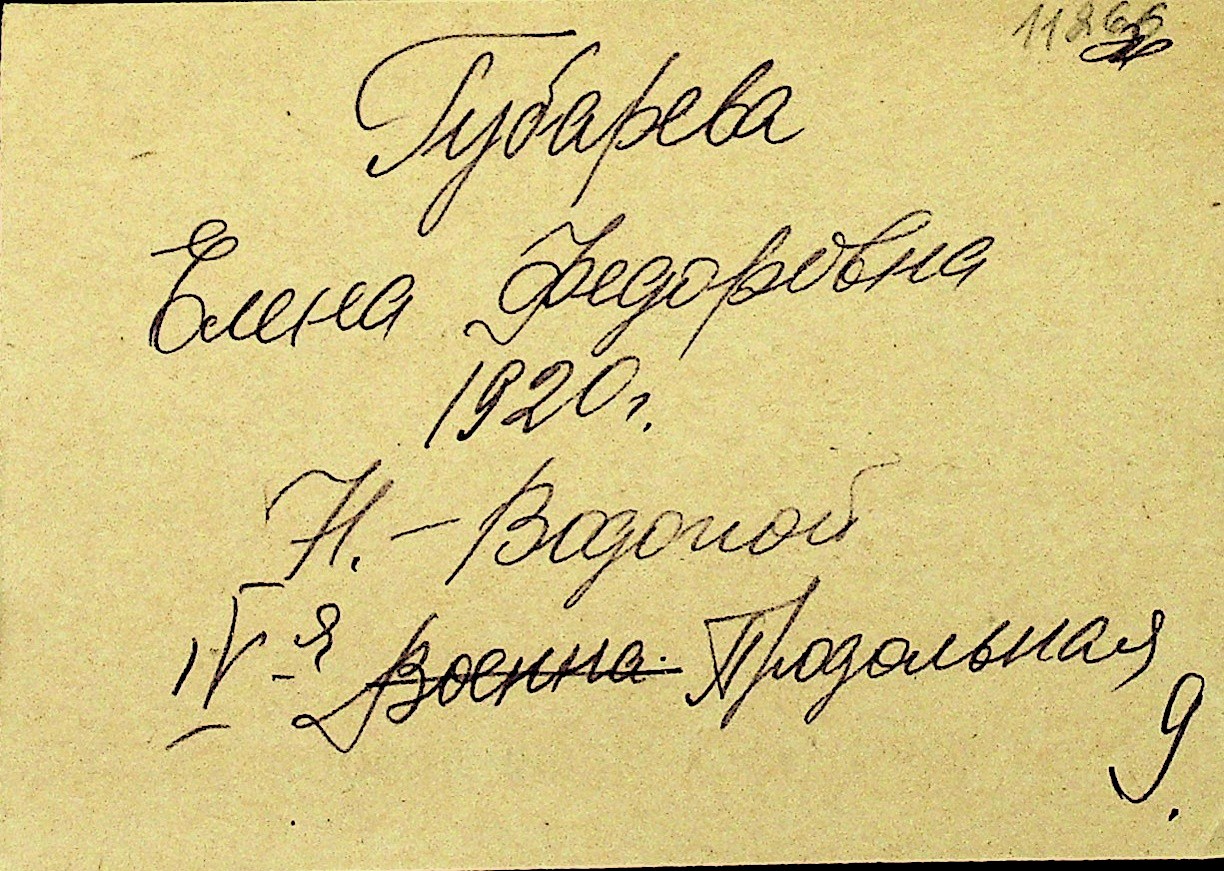 11866
Губарева
Елена Федоровна
1920г.
Н.-Водопой
IV-я Военна. Продольная
9.